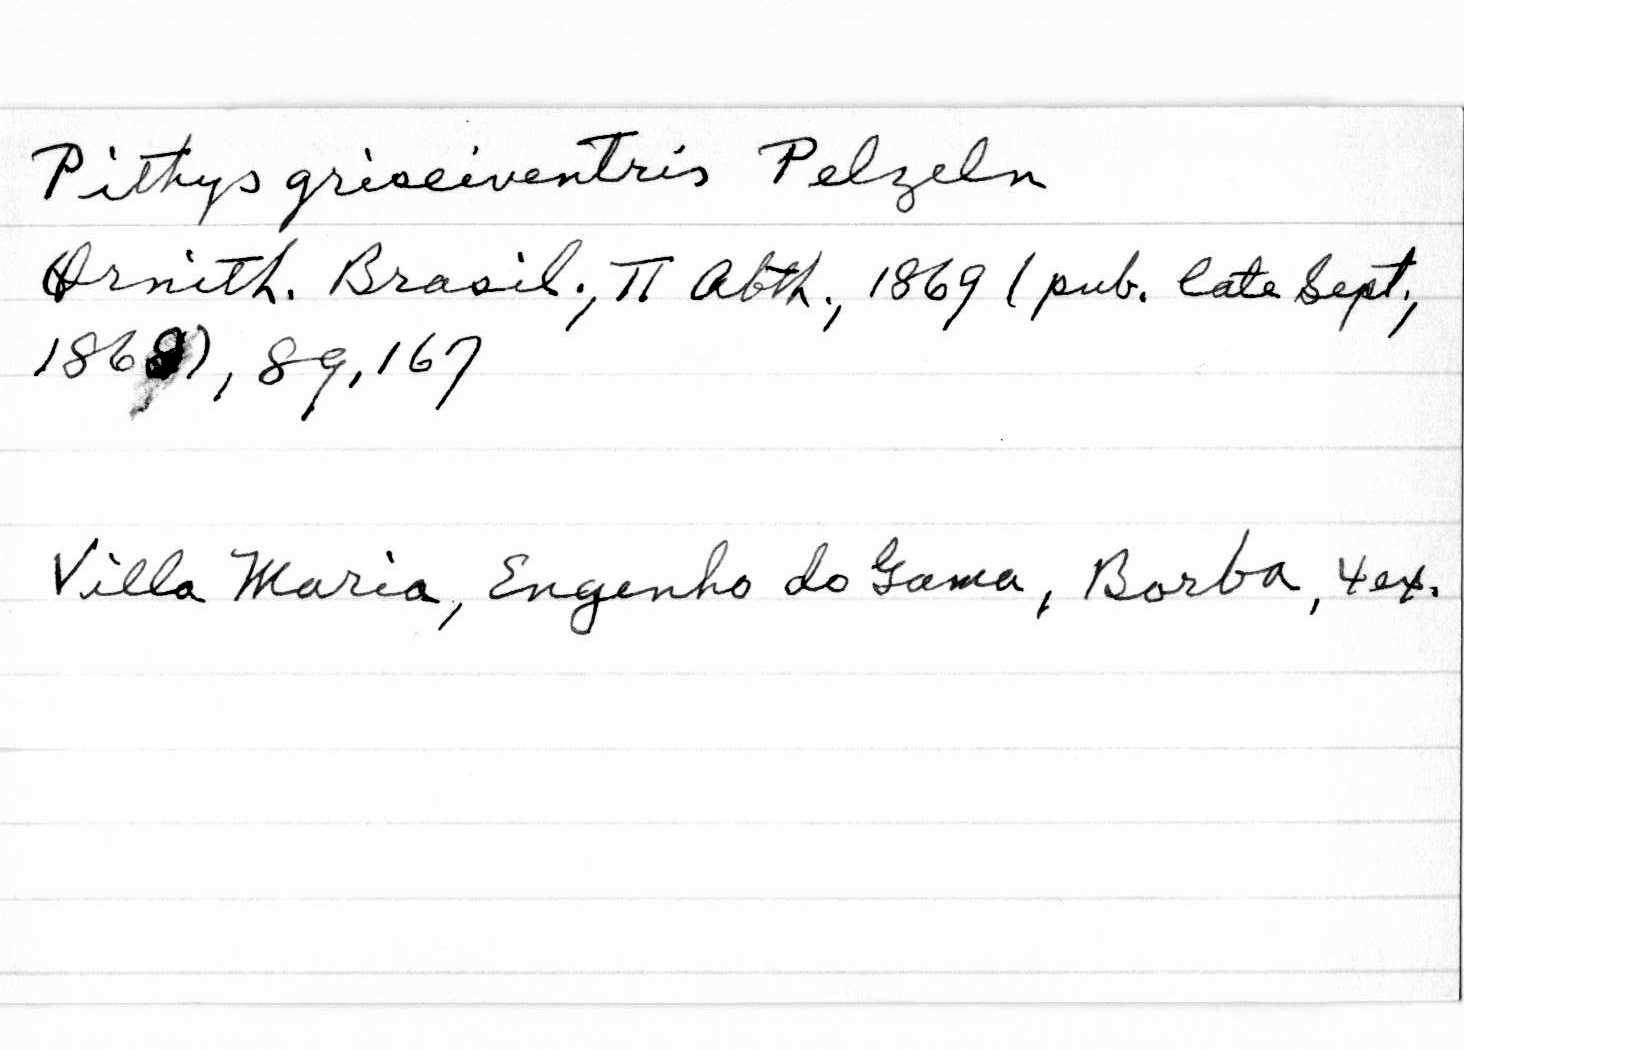 Pithys griseiventris Pelzeln
Ornith. Brasil., II Abth., 1869 (pub. late Sept.,
1868), 89, 167
Villa Maria, Engenho do Gama, Borba, 4 ex.